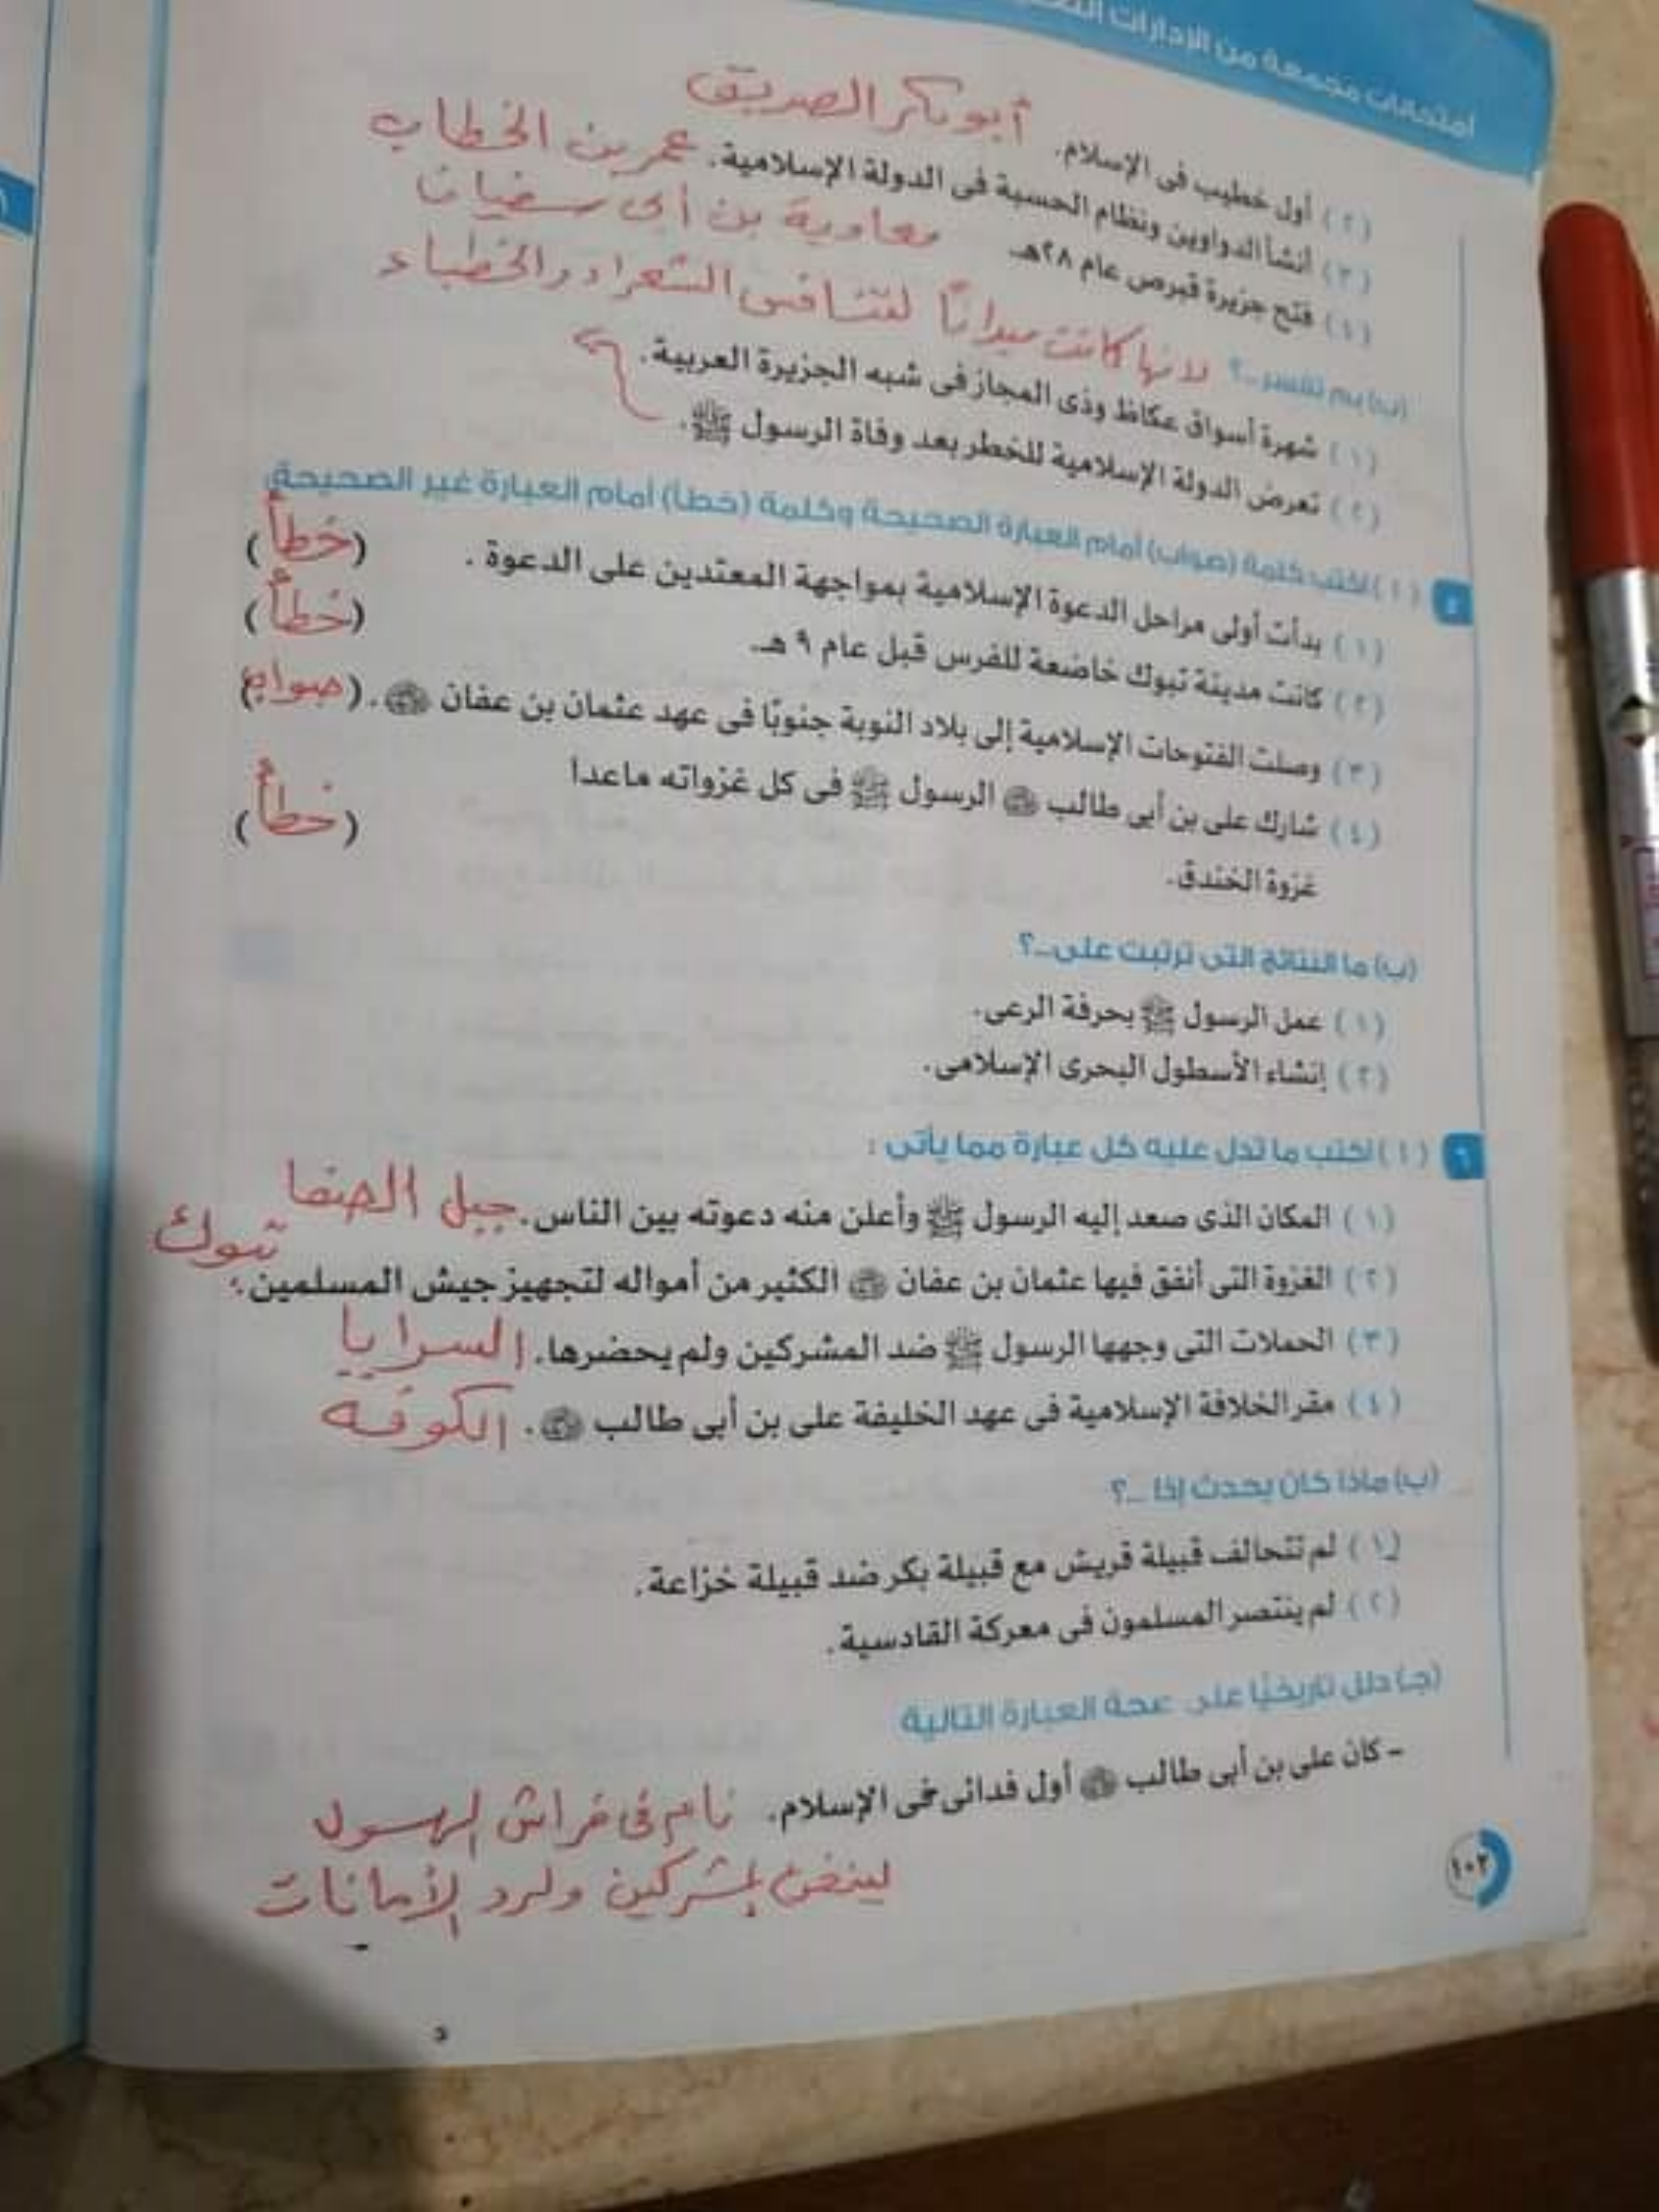 امتحانات مجمعة من الإدارات
(٢) أول خطيب فى الإسلام. أبو بكر الصديق
(٣) أنشأ الدواوين ونظام الحسبة فى الدولة الإسلامية. عمر بن الخطاب
(٤) فتح جزيرة قبرص عام ٢٨هـ معاوية بن أبى سفيان
(ب) بم تفسر...؟ لانها كانت ميدانًا لتنافس الشعراء والخطباء
(١) شهرة أسواق عكاظ وذى المجاز فى شبه الجزيرة العربية.
(٢) تعرض الدولة الإسلامية للخطر بعد وفاة الرسول ﷺ.
(أ) اكتب كلمة (صواب) أمام العبارة الصحيحة وكلمة (خطأ) أمام العبارة غير الصحيحة
(١) بدأت أولى مراحل الدعوة الإسلامية بمواجهة المعتدين على الدعوة. (خطأ)
(٢) كانت مدينة تبوك خاضعة للفرس قبل عام ٩ هـ. (خطأ)
(٣) وصلت الفتوحات الإسلامية إلى بلاد النوبة جنوبًا فى عهد عثمان بن عفان. (صواب)
(٤) شارك على بن أبى طالب الرسول ﷺ فى كل غزواته ماعدا (خطأ)
غزوة الخندق.
(ب) ما النتائج التى ترتبت على...؟
(١) عمل الرسول ﷺ بحرفة الرعى.
(٢) إنشاء الأسطول البحرى الإسلامى.
(أ) اكتب ما تدل عليه كل عبارة مما يأتى :
(١) المكان الذى صعد إليه الرسول ﷺ وأعلن منه دعوته بين الناس. جبل الصفا
(٢) الغزوة التى أنفق فيها عثمان بن عفان الكثير من أمواله لتجهيز جيش المسلمين. تبوك
(٣) الحملات التى وجهها الرسول ﷺ ضد المشركين ولم يحضرها. السرايا
(٤) مقر الخلافة الإسلامية فى عهد الخليفة على بن أبى طالب. الكوفة
(ب) ماذا كان يحدث إذا ...؟
(١) لم تتحالف قبيلة قريش مع قبيلة بكر ضد قبيلة خزاعة.
(٢) لم ينتصر المسلمون فى معركة القادسية.
(جـ) دلل تاريخيًا على صحة العبارة التالية
- كان على بن أبى طالب أول فدائى فى الإسلام. نام فى فراش الرسول
المشركين ولرد الأمانات
١٠٢